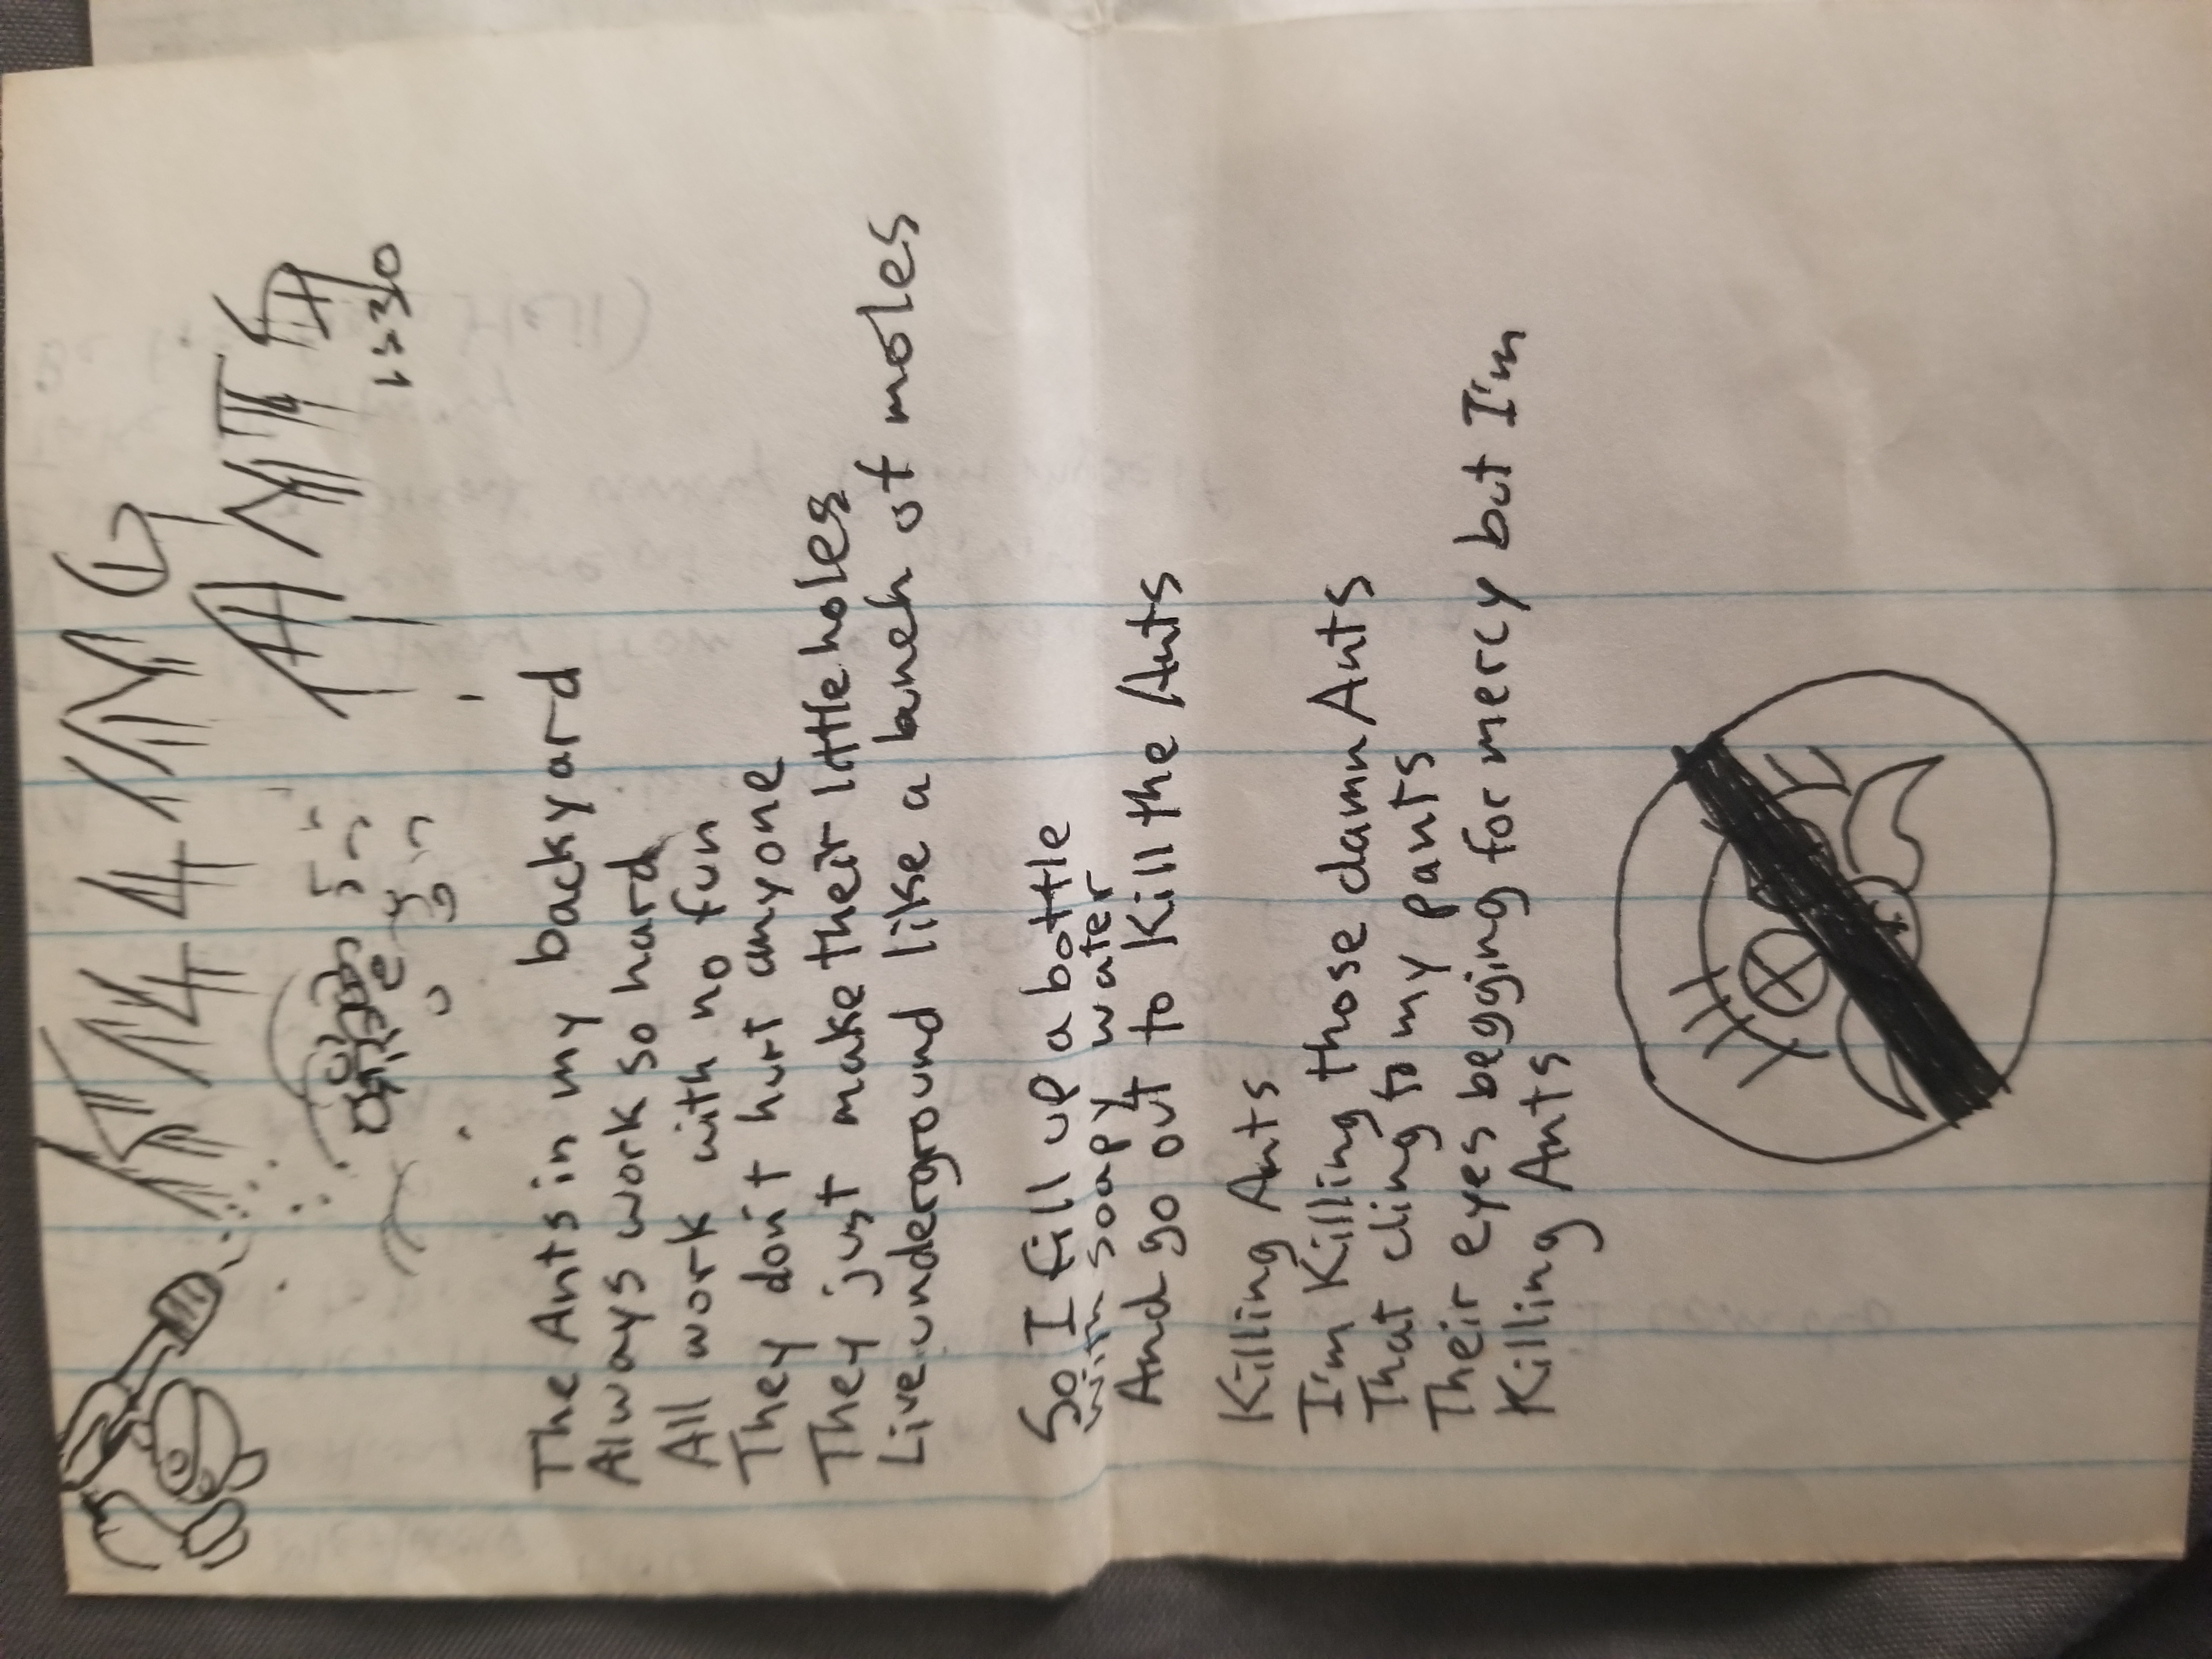 KILLING
ANTS
1:30
The Ants in my backyard
Always work so hard
All work with no fun
They don't hurt anyone
They just make their little holes
Live underground like a bunch of moles
So I fill up a bottle
with soapy water
And go out to Kill the Ants
Killing Ants
I'm Killing those damn Ants
That cling to my pants
Their eyes begging for mercy but I'm
Killing Ants